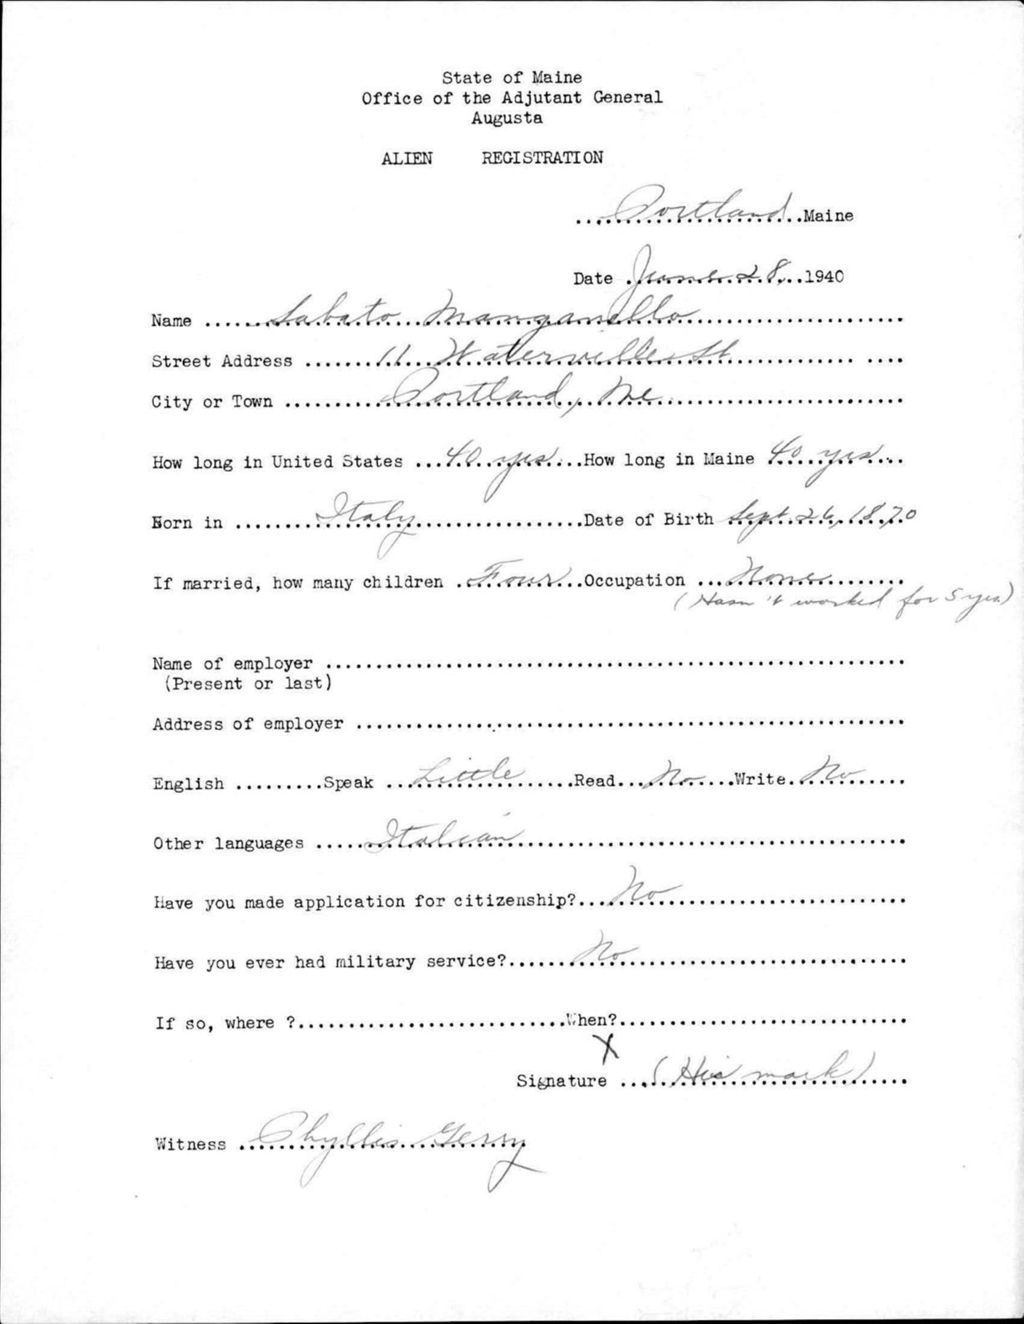 State of Maine
Office of the Adjutant General
Augusta
ALIEN REGISTRATION
Portland Maine
Date June 28, 1940
Name Sabato Manganello
Street Address 11 Waterville St
City or Town Portland, Me.
How long in United States 40 yrs How long in Maine 40 yrs
Born in Italy Date of Birth Sept. 26, 1870
If married, how many children Four Occupation None
(Hasn't worked for 5 yrs.)
Name of employer
(Present or last)
Address of employer
English Speak Little Read No Write No
Other languages Italian
Have you made application for citizenship? No
Have you ever had military service? No
If so, where ? When?
X
Signature (His mark)
Witness Phyllis Gerry